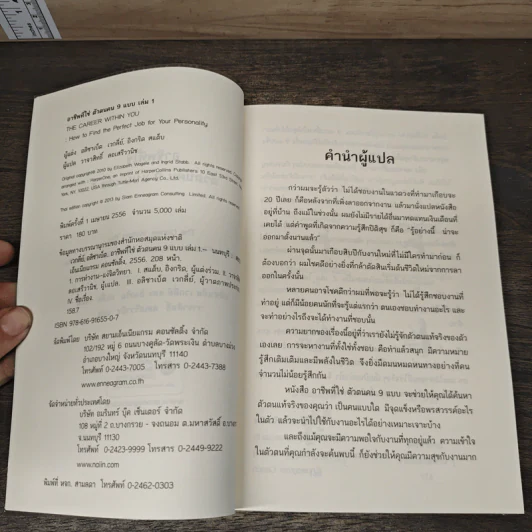 อาชีพที่ใช่ ตัวตนคน 9 แบบ เล่ม 1
THE CAREER WITHIN YOU
: How to Find the Perfect Job for Your Personality
ผู้แต่ง อลิซาเบ็ธ เวกลีย์, อิงกริด สแต็บ
ผู้แปล วาจาสิทธิ์ ลอเสรีวานิช
Digital copyright 2010 by Elizabeth Wagele and Ingrid Stabb. All rights reserved.
arranged with HarperOne, an imprint of HarperCollins Publishers 10 East 53rd Street
NY, 10022, USA through Tuttle-Mori Agency Co., Ltd.
Thai edition copyright © 2013 by Siam Enneagram Consulting Limited. All rights
พิมพ์ครั้งที่ 1 เมษายน 2556 จำนวน 5,000 เล่ม
ราคา 180 บาท
ข้อมูลทางบรรณานุกรมของสำนักหอสมุดแห่งชาติ
เวกลีย์, อลิซาเบ็ธ, อาชีพที่ใช่ ตัวตนคน 9 แบบ เล่ม 1.-- นนทบุรี
เอ็นเนียแกรม คอนซัลติ้ง, 2556. 208 หน้า.
1. การทำงาน-แง่จิตวิทยา I. สแต็บ, อิงกริด, ผู้แต่งร่วม. II. วาจาสิทธิ์
ลอเสรีวานิช, ผู้แปล. III. อลิซาเบ็ธ เวกลีย์,
IV ชื่อเรื่อง
158.7
ISBN 978-616-91655-0-7
จัดพิมพ์โดย บริษัท สยามเอ็นเนียแกรม คอนซัลติ้ง จำกัด
102/192 หมู่ 6 ถนนบางคูลัด-วัดพระเงิน ตำบลบางม่วง
อำเภอบางใหญ่ จังหวัดนนทบุรี 11140
โทรศัพท์ 0-2443-7005 โทรสาร 0-2443-7388
www.enneagram.co.th
จัดจำหน่ายทั่วประเทศโดย
บริษัท อมรินทร์ บุ๊ค เซ็นเตอร์ จำกัด
108 หมู่ที่ 2 ถ.บางกรวย - จงถนอม ต.มหาสวัสดิ์ อ.บางกรวย
จ.นนทบุรี 11130
โทรศัพท์ 0-2423-9999 โทรสาร 0-2449-9222
www.naiin.com
พิมพ์ที่ หจก. สามลดา โทรศัพท์ 0-2462-0303
คำนำผู้แปล
กว่าผมจะรู้ตัวว่า ไม่ได้ชอบงานในแวดวงที่ทำมาเกือบจะ
20 ปีเลย ก็คือหลังจากที่เพิ่งลาออกจากงาน แล้วมานั่งแปลหนังสือ
อยู่ที่บ้าน ถึงแม้ในช่วงนั้น ผมยังไม่มีรายได้อื่นมาทดแทนเงินเดือนที่
เคยได้ แต่คำพูดที่เกิดจากความรู้สึกปีติสุข ก็คือ “รู้อย่างนี้ น่าจะ
ออกมาตั้งนานแล้ว”
ผ่านจุดนั้นมาเกือบสิบปีกับงานใหม่ที่ไม่มีใครทำมาก่อน ก็
ต้องบอกว่า ผมโชคดีอย่างยิ่งที่กล้าตัดสินเริ่มต้นชีวิตใหม่จากการลา
ออกในครั้งนั้น
หลายคนอาจโชคดีกว่าผมที่พอจะรู้ว่า ไม่ได้รู้สึกชอบงานที่
ทำอยู่ แต่ก็มีน้อยคนนักที่จะรู้แต่แรกว่า ตนเองชอบทำงานอะไร และ
จะทำอย่างไรถึงจะได้ทำงานที่ชอบนั้น
ความยากของเรื่องนี้อยู่ที่ว่าเรายังไม่รู้จักตัวตนที่แท้จริงของตัว
เองเลย การจะหางานที่ทั้งใช่ทั้งชอบ คือทำแล้วสนุก มีความหมาย
รู้สึกเติมเต็มและมีพลังในชีวิต จึงยิ่งมืดแมนหมดหนทางอย่างที่คน
จำนวนไม่น้อยรู้สึกกัน
หนังสือ อาชีพที่ใช่ ตัวตนคน 9 แบบ จะช่วยให้คุณได้ค้นหา
ตัวตนแท้จริงของคุณว่า เป็นคนแบบใด มีจุดแข็งหรือพรสวรรค์อะไร
ในตัว แล้วจะนำไปใช้กับงานอะไรได้อย่างเหมาะเจาะบ้าง
และถึงแม้คุณจะมีความพอใจกับงานที่ทุกอยู่แล้ว ความเข้าใจ
ในตัวตนที่คุณกำลังจะค้นพบนี้ ก็ยังช่วยให้คุณมีความสุขกับงานมาก